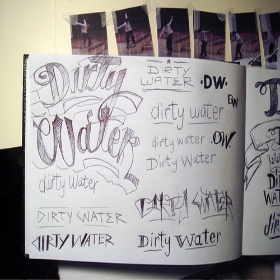 Dirty
Water
dirty water
DIRTY WATER
DIRTY WATER
DIRTY
WATER
·DW·
DW
dirty water
dirty water
DW
Dirty Water
DIRTY WATER
Dirty Water